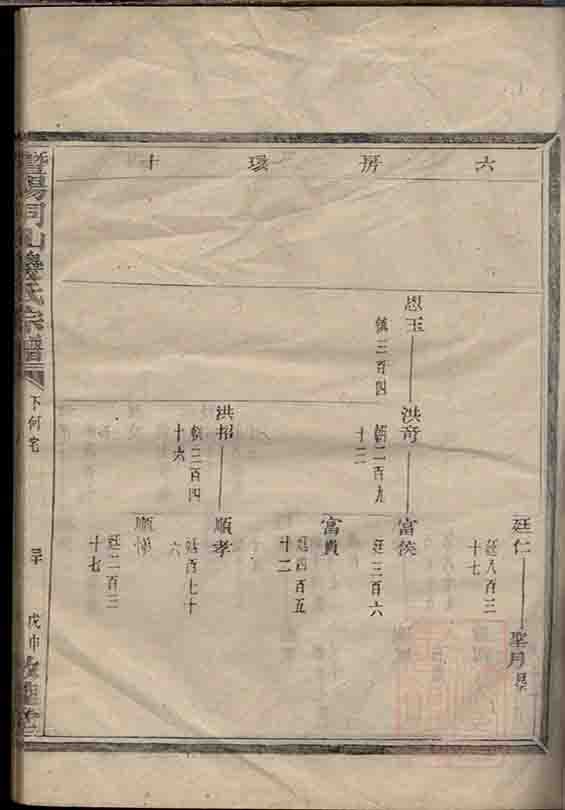 六房環十
廷仁
廷八百三
十七
聖月
恩玉
慎三百四
洪奇
朝二百九
十二
富俟
廷三百六
富貴
廷四百五
十二
洪招
朝三百四
十六
順孝
廷百七十
六
廷二百三
十七
暨陽同山邊氏宗譜
下何宅
戊申